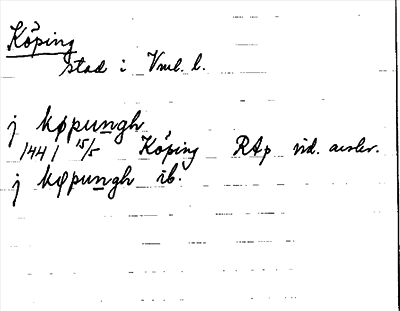 Köping
stad i Vml. l.
j køpungh
1441 15/5 Köping RAp vid. avskr.
j køpungh ib.